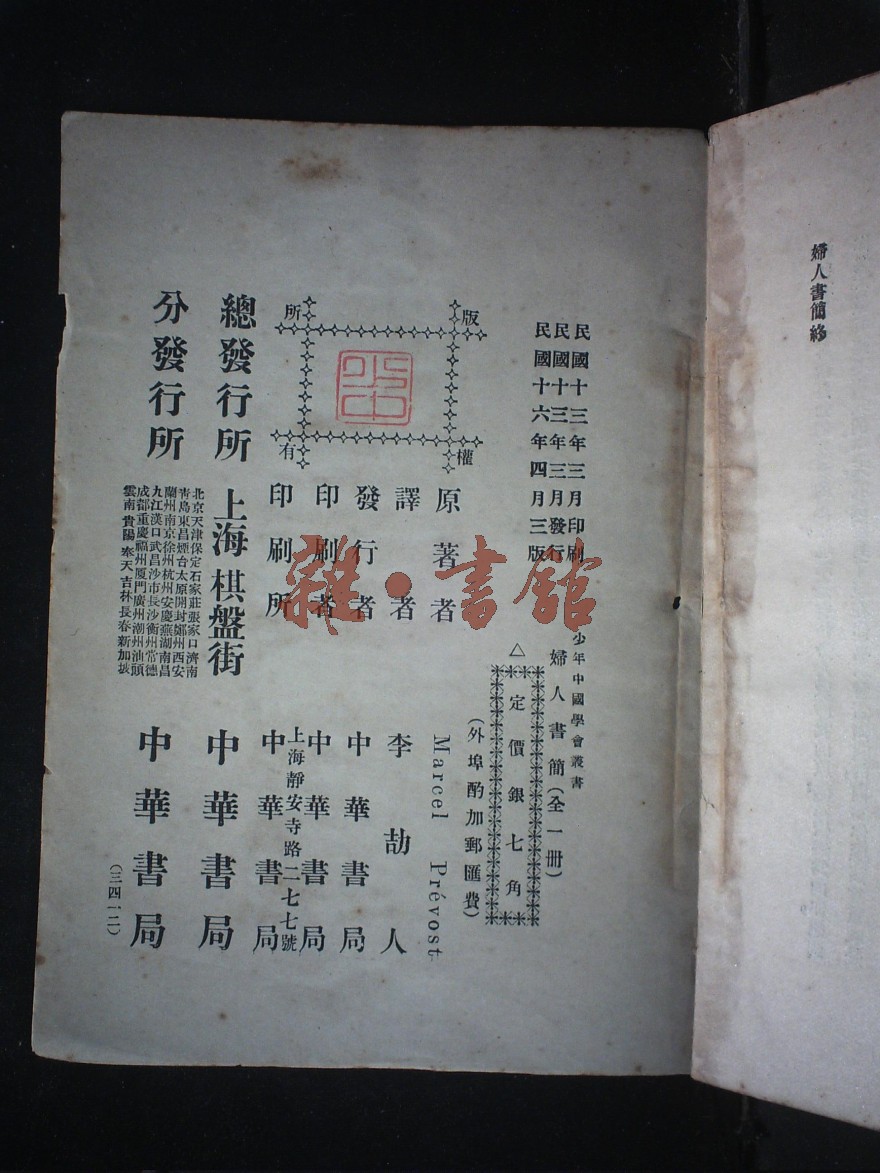 婦人書簡終
民國十三年三月印刷
民國十三年三月發行
民國十六年四月三版
少年中國學會叢書
婦人書簡(全一冊)
△定價銀七角
(外埠酌加郵匯費)
版權所有
原著者 Marcel Prévost
譯者 李劼人
發行者 中華書局
印刷者 中華書局
上海靜安寺路二七七號
印刷所 中華書局
總發行所 上海棋盤街 中華書局
分發行所
北京天津保定石家莊張家口濟南
青島東昌煙台太原開封鄭州西安
蘭州南京徐州杭州安慶蕪湖南昌
九江漢口武昌沙市長沙衡州常德
成都重慶福州厦門廣州潮州汕頭
雲南貴陽奉天吉林長春新加坡
中華書局
(三四一二)
雜·書館